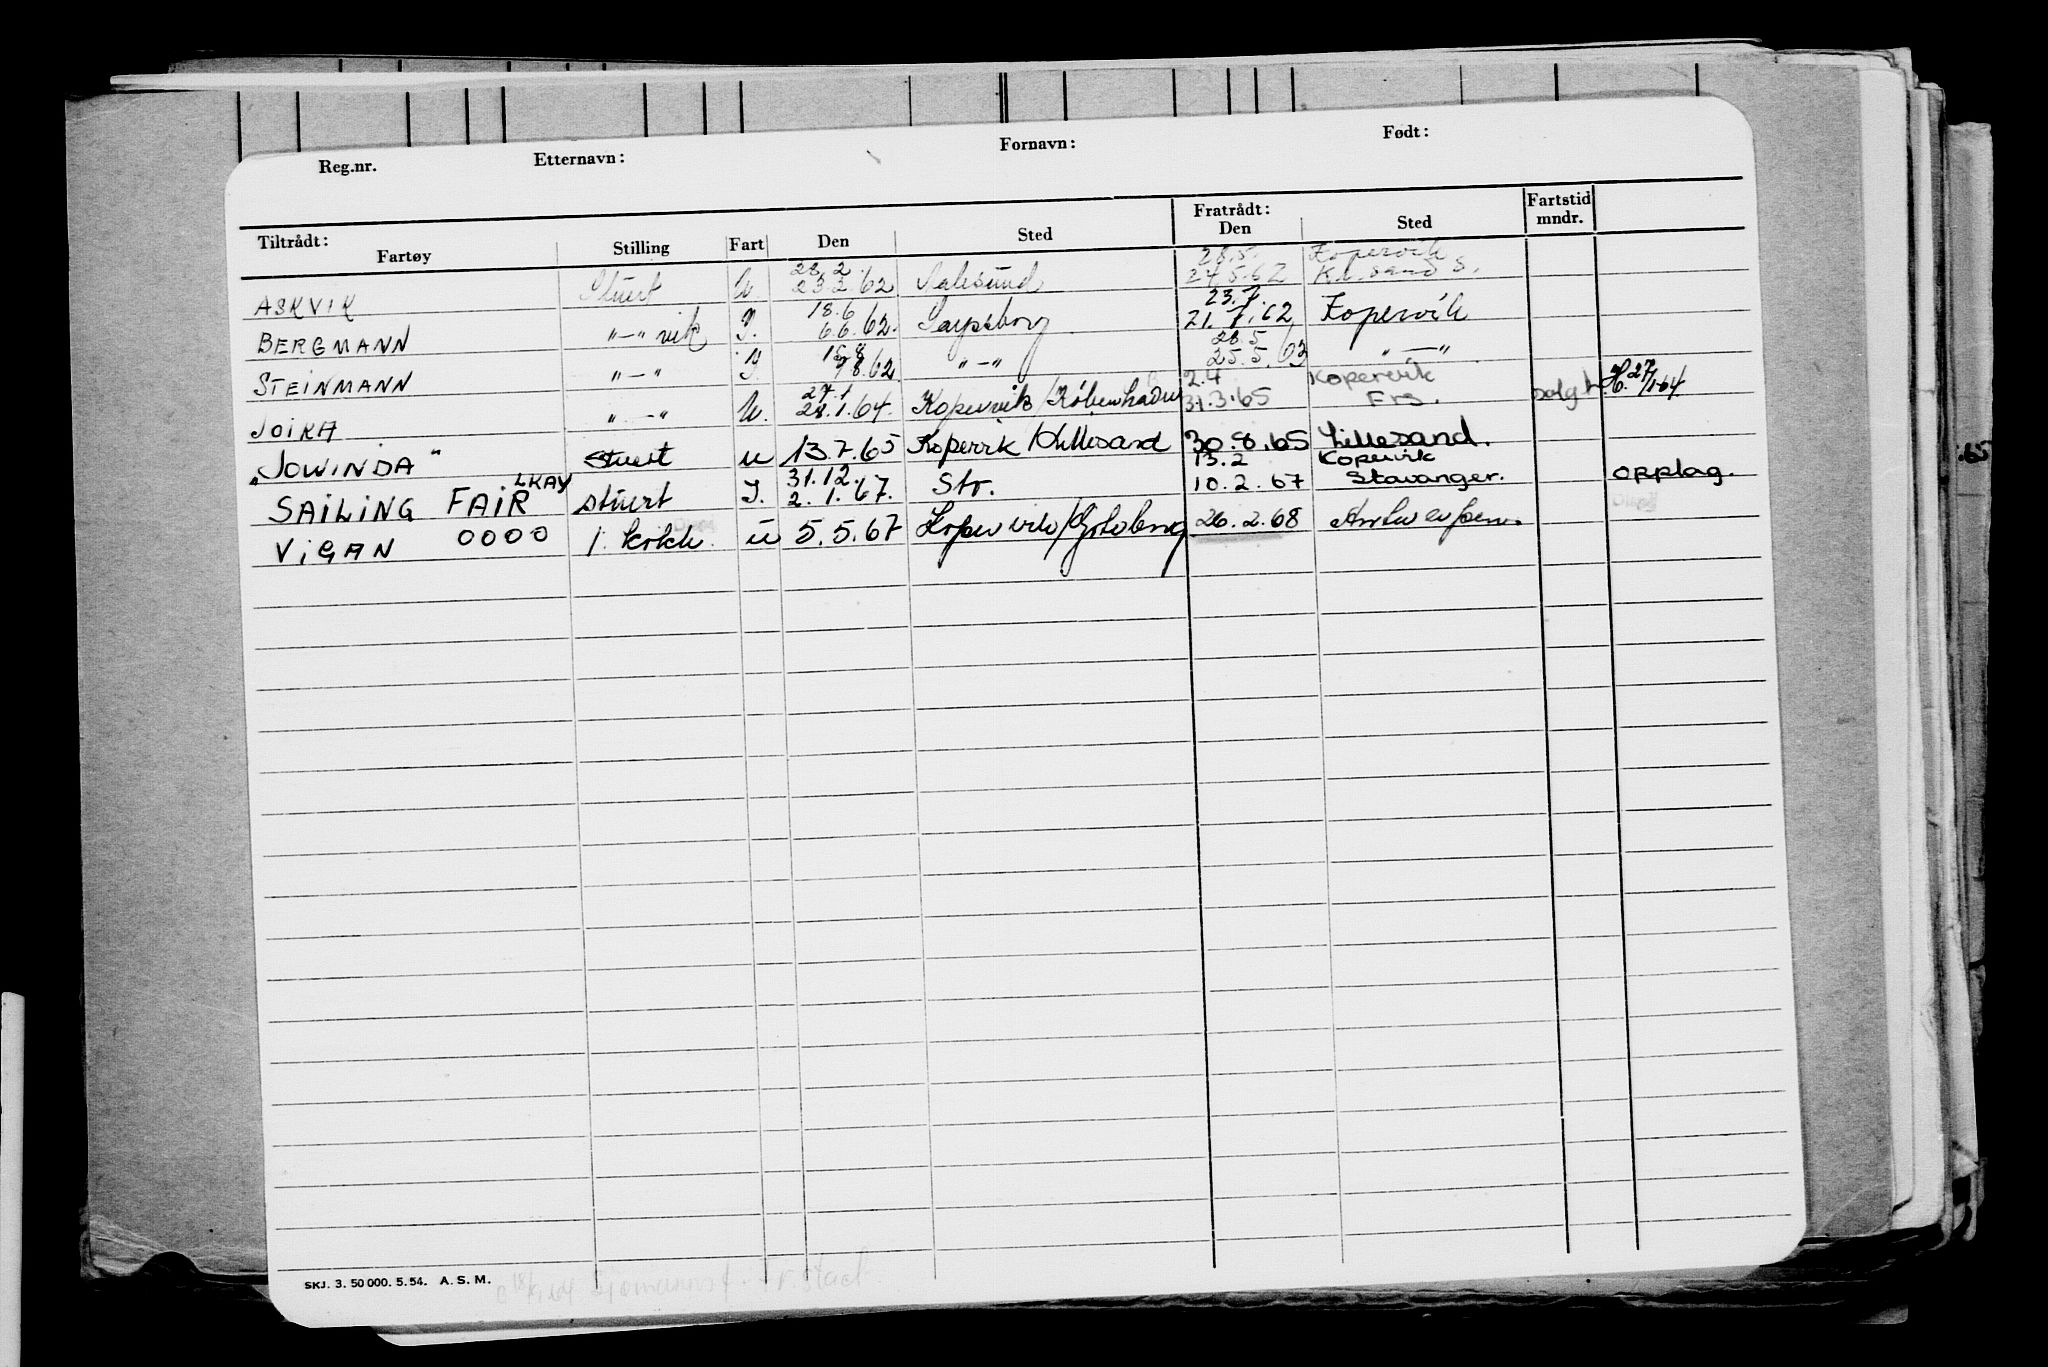 Reg.nr. Etternavn: Fornavn: Født:
Tiltrådt: Fratrådt: Fartstid
Fartøy Stilling Fart Den Sted Den Sted mndr.
28.2 28.5. Kopervik
ASKVIK Stuert U. 23.2.62 Aalesund 24.5.62 Kr.sand S.
18.6 23.7.
BERGMANN "—" vik I. 6.6.62. Sarpsborg 21.7.62 Kopervik
15.8 28.5
STEINMANN "—" I 7.8.62 "—" 25.5.63 "—"
27.1 2.4 Kopervik
JOIKA "—" U. 28.1.64. Kopervik/København 31.3.65 Frs. solgt H. 27/1-64.
"JOWINDA" stuert u 13.7.65 Kopervik/Lillesand 30.8.65 Lillesand.
LKAY 31.12. 13.2 Kopervik
SAILING FAIR stuert I. 2.1.67. Str. 10.2.67 Stavanger. opplag.
VIGAN 0000 1. kokk u 5.5.67 Kopervik/Gøteborg 26.2.68 Antwerpen.
SKJ. 3. 50 000. 5. 54. A. S. M.
.65